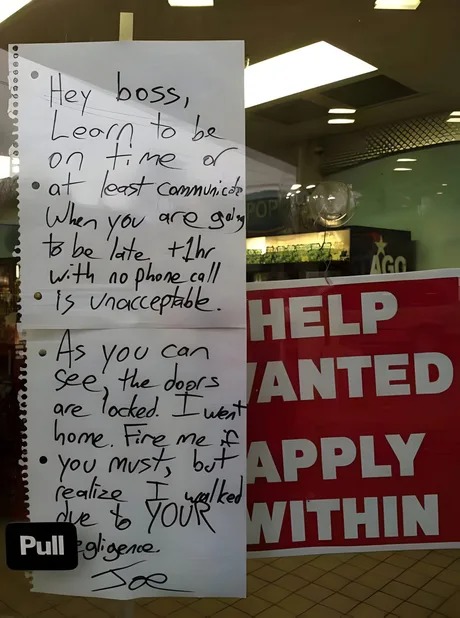 Hey boss,
Learn to be
on time or
at least communicate
When you are going
to be late +1hr
with no phone call
is unacceptable.
As you can
see, the doors
are locked. I went
home. Fire me if
you must, but
realize I walked
due to YOUR
egligence.
Joe
Pull
POP
AGO
HELP
WANTED
APPLY
WITHIN